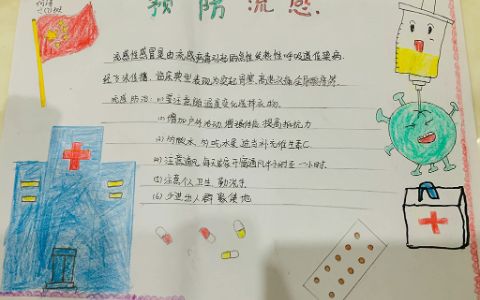 预防流感
流感性感冒是由流感病毒引起的急性发热性呼吸道传染病.
经飞沫传播.临床典型表现为突起胃寒.高热
流感防治:(1)要注意随温度变化 衣物.
(2)增加户外活动.增强体质.提高抵抗力
(3)多喝水,多吃水果.适当补充维生素C
(4)注意通风,每天 开窗通风半小时至一小时.
(5)注意个人卫生.勤洗手
(6)少进出人群聚集地